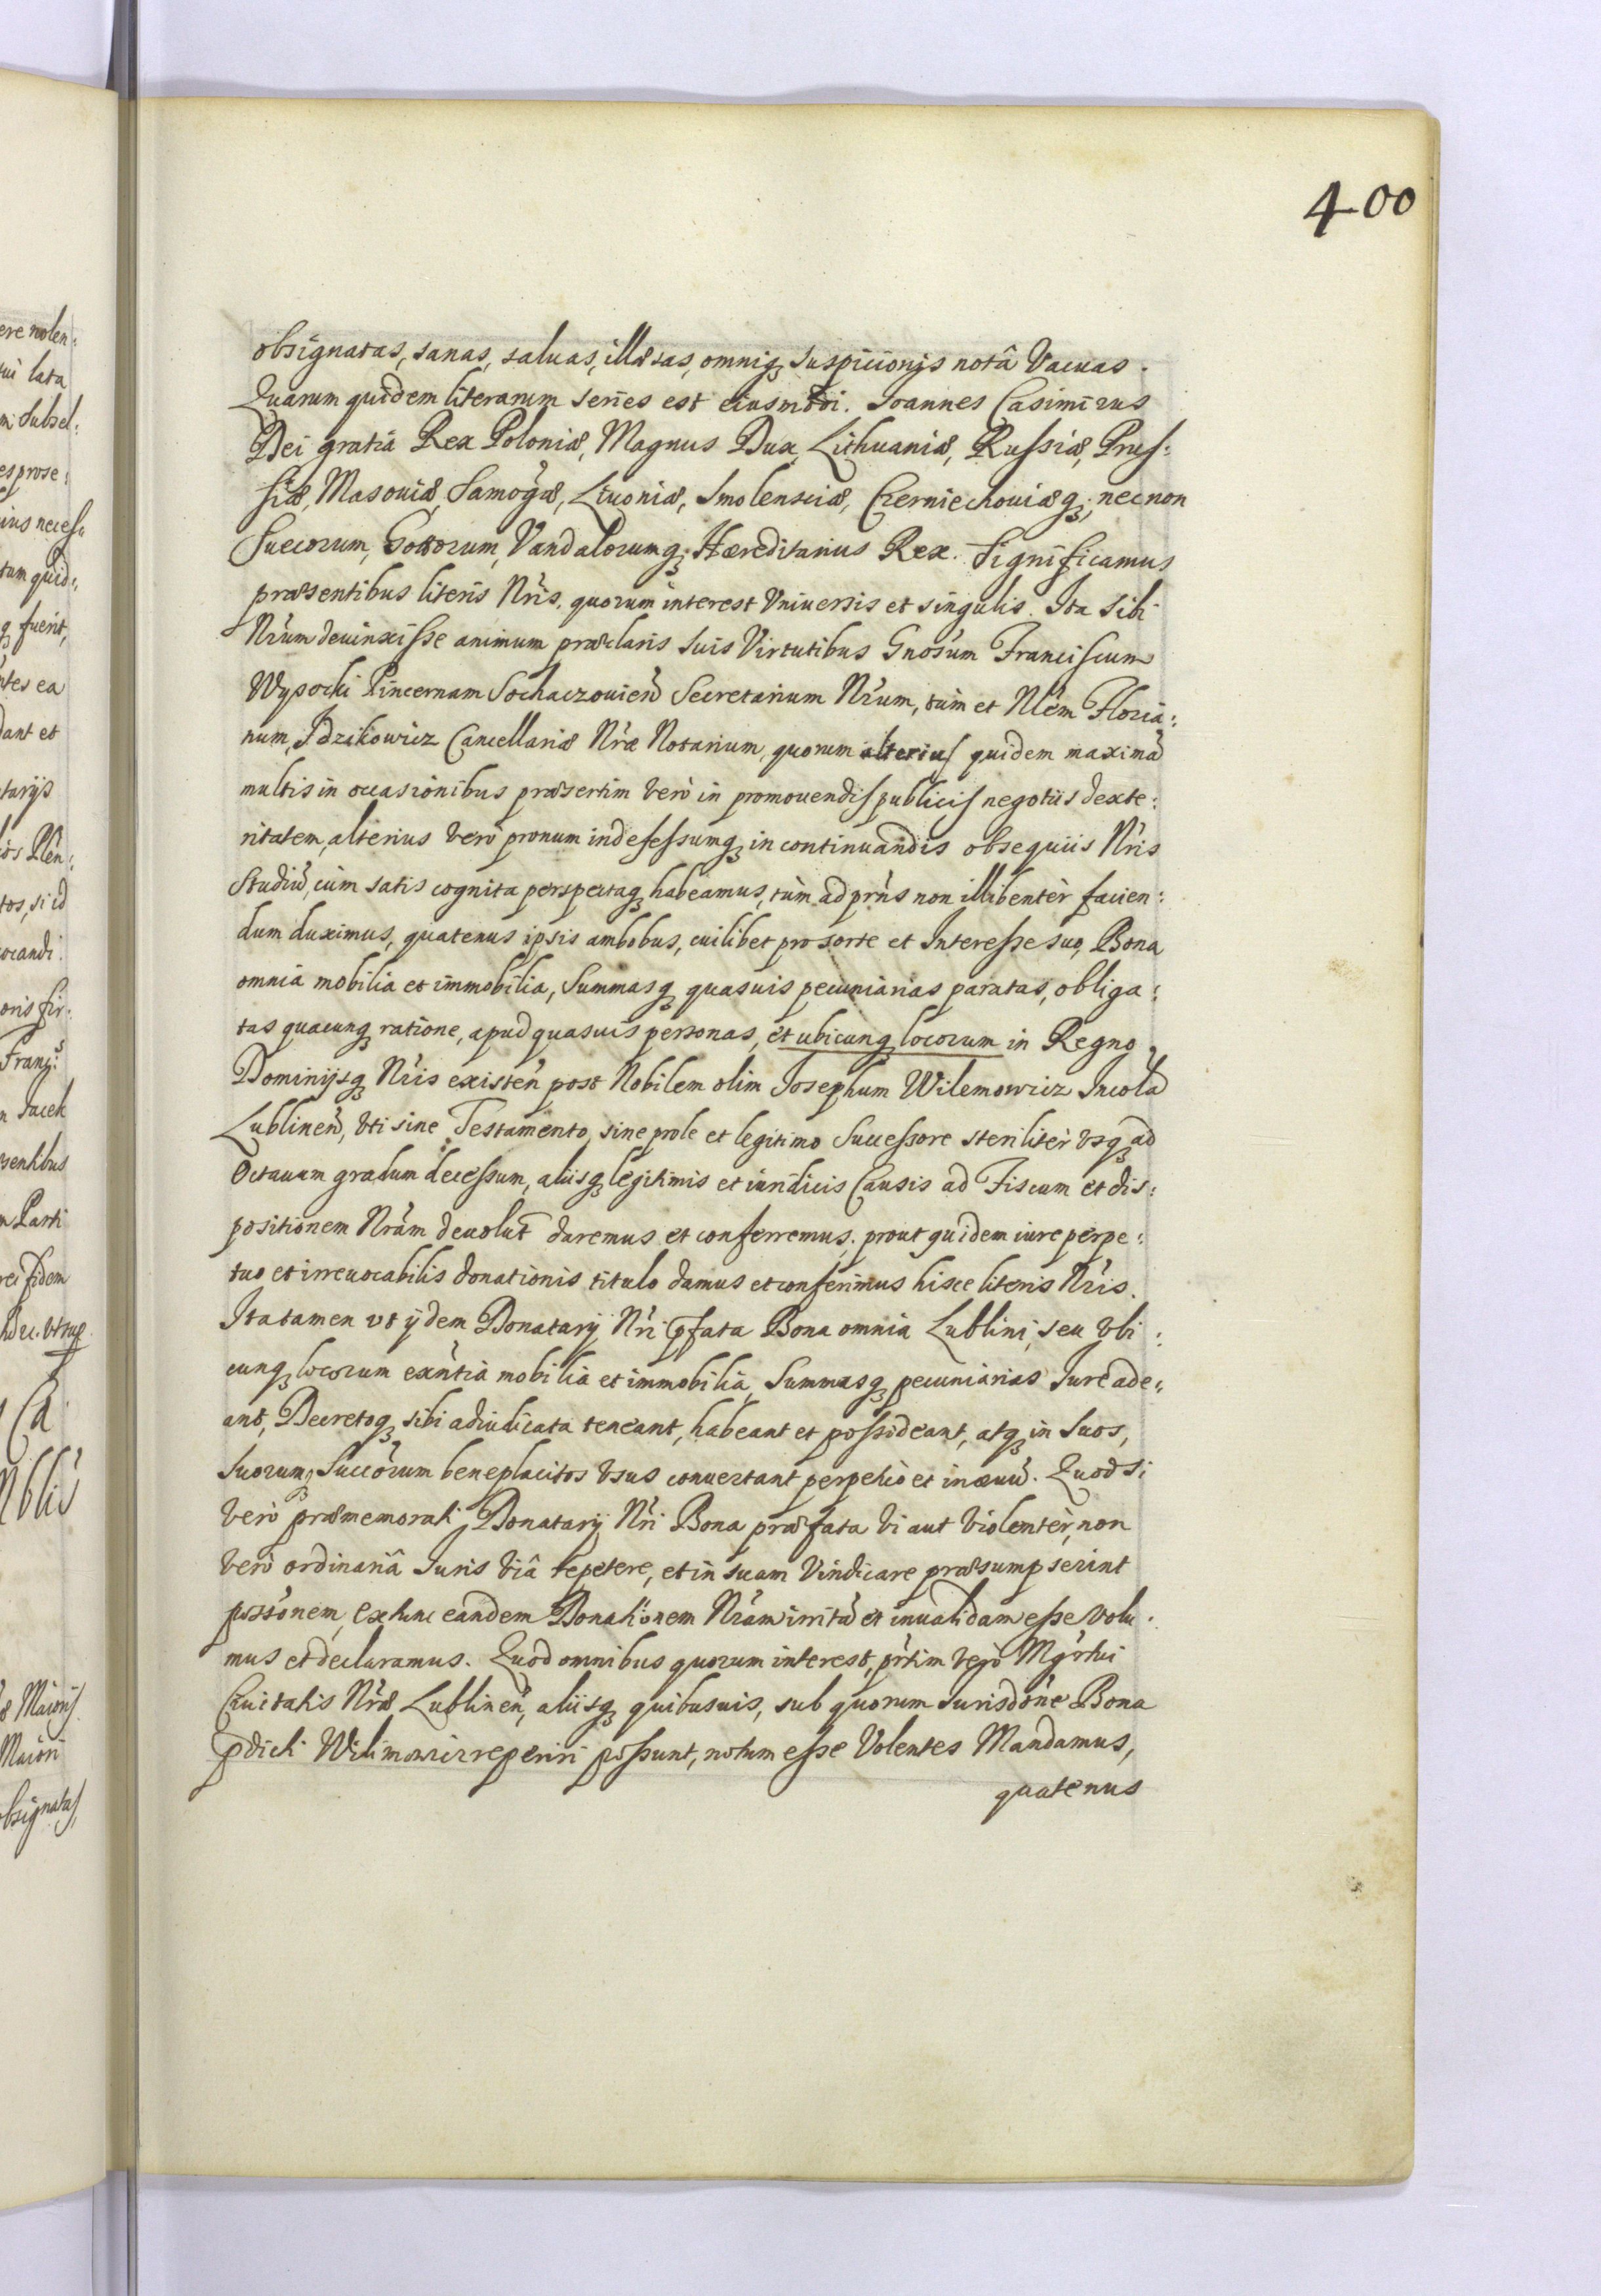 400
obsignatas, sanas, saluas, illæsas, omniq₃ suspicionis notâ Vacuas.
Quarum quidem literarum series est eiusmodi. Joannes Casimirus
Dei gratiâ Rex Poloniæ, Magnus Dux, Lithuaniæ, Russiæ, Prus:
siæ, Masouiæ, Samogæ, Liuoniæ, Smolensciæ, Czerniechouiæq₃; necnon
Suecorum, Gottorum, Vandalorumq₃ Hæreditarius Rex. Significamus
præsentibus literis Nris, quorum interest Vniuersis et singulis. Ita sibi
Nrum deuinxisse animum præclaris suis Virtutibus Gnosum Franciscum
Wysocki Pincernam Sochaczouien̄ Secretarium Nrum, tùm et Nlem Floria:
num, Idzikowicz Cancellariæ Nræ Notarium, quorum alterius quidem maximā
multis in occasionibus præsertim verò in promouendis publicis negotiis dexte:
ritatem, alterius verò pronum indefessumq₃ in continuandis obsequiis Nris
Studiū, cùm satis cognita perspectaq₃ habeamus, tùm ad prns non illibentèr facien:
dum duximus, quatenus ipsis ambobus, cuilibet pro sorte et Interesse suo, Bona
omnia mobilia et immobilia, Summasq₃ quasuis pecuniarias paratas, obliga:
tas quacunq₃ ratione, apud quasuis personas, et ubicunq₃ locorum in Regno
Dominijsq₃ Nris existen̄ post Nobilem olim Josephum Wilemowicz Incolā
Lublinen̄, vti sine Testamento, sine prole et legitimo Successore sterilitèr vsq₃ ad
Octauum gradum decessum, aliisq₃ legitimis et iuridicis Causis ad Fiscum et dis:
positionem Nram deuolut̄ daremus et conferremus; prout quidem iure perpe:
tuo et irreuocabilis donationis titulo damus et conferimus hisce literis Nris.
Ita tamen vt ÿdem Donatarÿ Nri pfata Bona omnia Lublini, seu vbi:
cunq₃ locorum exntia mobilia et immobilia, Summasq₃ pecuniarias Iure ade:
ant, Decretoq₃ sibi adiudicata teneant, habeant et possideant, atq₃ in suos,
suorumq₃ Succorum beneplacitos vsus conuertant perpetuò et in æuū. Quod si
verò præmemorati Donatarÿ Nri Bona præfata vi aut violentèr, non
verò ordinariâ Iuris viâ repetere, et in suam Vindicare præsumpserint
possonem, extunc eandem Donationem Nram irritā et inualidam esse volu:
mus et declaramus. Quod omnibus quorum interest, prtim verò Mgrtui
Ciuitatis Nræ Lublinen̄, aliisq₃ quibusuis, sub quorum Iurisdone Bona
pdicti Wilimowicz reperiri possunt, notum esse Volentes Mandamus,
quatenus
ere nolen:
tui lata
m subsel:
es prose:
ius necess
tam quid:
q₃ fuerit,
ntes ea
dant et
tarijs
tos, si id
ocandi
oris fir:
Franc:
n Jacek
sentibus
n Parti
rei fidem
Ca
Nblis
æ Maioris
Maiori
obsignatas,